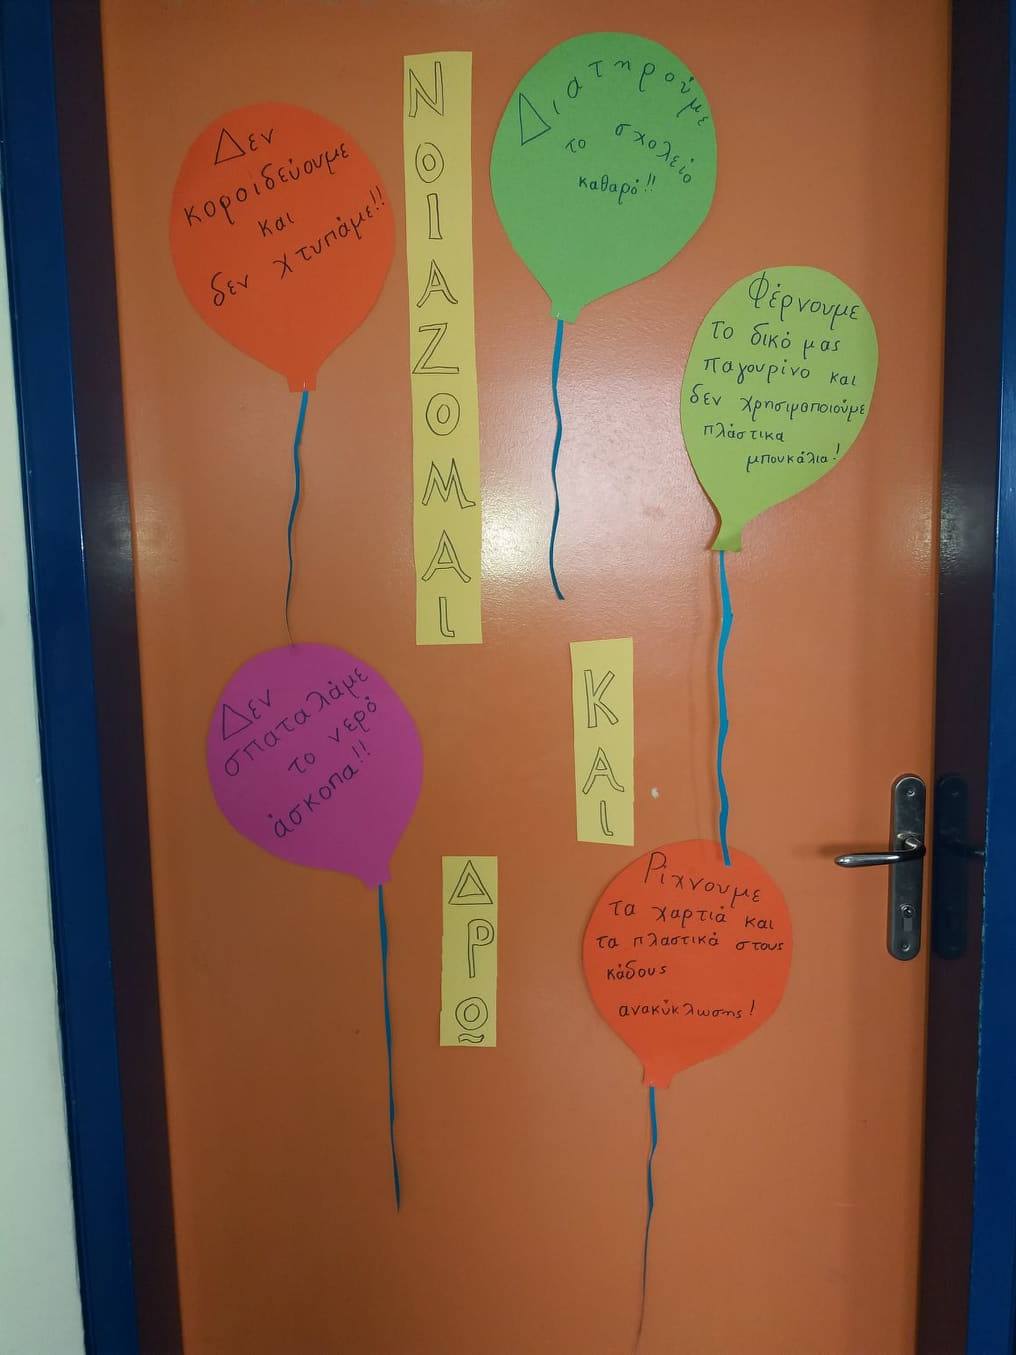 ΝΟΙΑΖΟΜΑΙ
ΚΑΙ
ΔΡΩ
Δεν
κοροϊδεύουμε
και
δεν χτυπάμε!!
Διατηρούμε
το σχολείο
καθαρό!!
Φέρνουμε
το δικό μας
παγουρίνο και
δεν χρησιμοποιούμε
πλάστικα
μπουκάλια!
Δεν
σπαταλάμε
το νερό
άσκοπα!!
Ρίχνουμε
τα χαρτιά και
τα πλαστικά στους
κάδους
ανακύκλωσης!